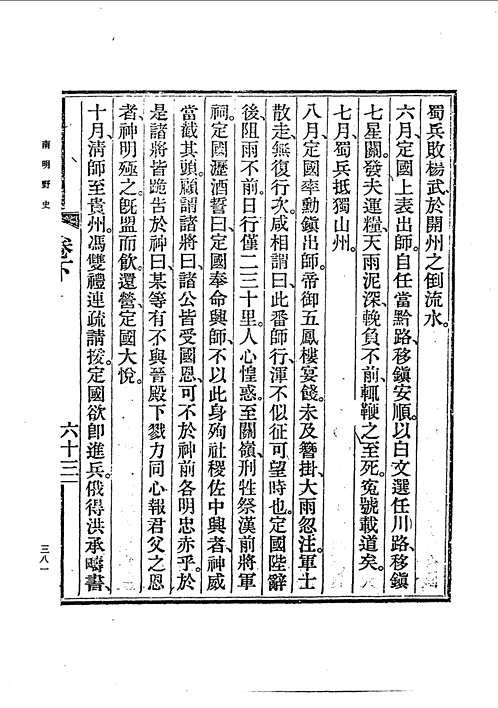 蜀兵敗楊武於開州之倒流水。
六月、定國上表出師。自任當黔路、移鎮安順。以白文選任川路、移鎮
七星關。發夫運糧、天雨泥深、輓負不前、輒鞭之至死。冤號載道矣。
七月、蜀兵抵獨山州。
八月、定國率勳鎮出師。帝御五鳳樓宴餞。未及簪掛、大雨忽注。軍士
散走、無復行次。咸相謂曰、此番師行、渾不似征可望時也。定國陛辭
後、阻雨不前。日行僅二三十里。人心惶惑。至關嶺、刑牲祭漢前將軍
祠。定國瀝酒誓曰、定國奉命興師、不以此身殉社稷佐中興者、神威
當截其頭。顧謂諸將曰、諸公皆受國恩、可不於神前各明忠赤乎。於
是諸將皆跪告於神曰、某等有不與晉殿下戮力同心報君父之恩
者、神明殛之。既盟而飲。還營、定國大悅。
十月、清師至貴州。馮雙禮連疏請援。定國欲卽進兵。俄得洪承疇書、
南明野史
卷下
六十三
三八一